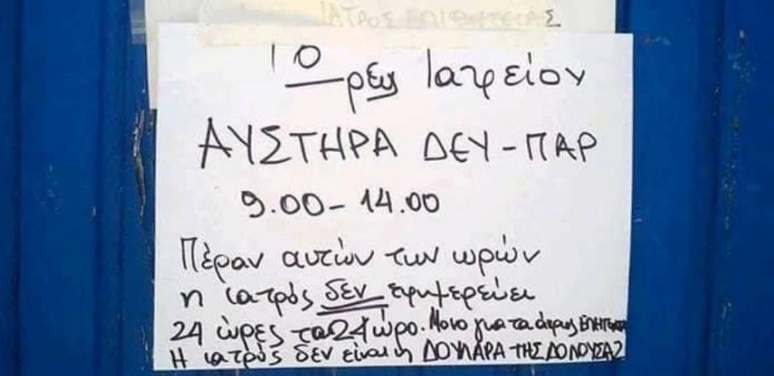 ΙΑΤΡΟΣ ΕΠΙΘ
Ὼρες Ιατρείου
ΑΥΣΤΗΡΑ ΔΕΥ - ΠΑΡ
9.00 - 14.00
Πέραν αυτών των ωρών
η ιατρός δεν εφημερεύει
24 ώρες το 24ωρο. Μονο για τα άκρως
Η ιατρός δεν είναι η ΔΟΥΛΑΡΑ ΤΗΣ ΔΟΝΟΥΣΑΣ